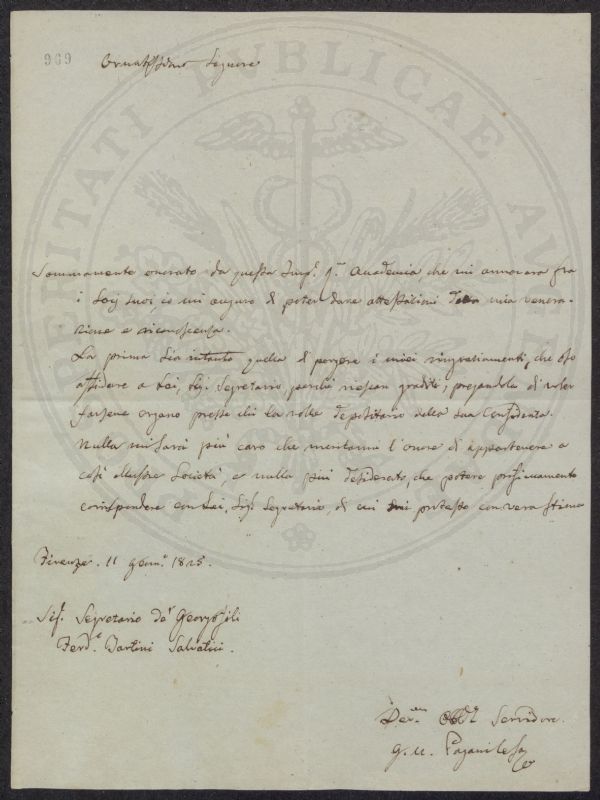 969
Ornatissimo Signore
Sommamente onorato da questa Insig. Accademia, che mi annovera fra
i Socj suoi, io mi auguro di poter dare attestati mia venera-
zione e riconoscenza.
La prima sia intanto quella di porgere i miei ringraziamenti, che oso
affidare a Lei, Sig. Segretario, perchè riescan graditi, pregandola di voler
farsene organo presso chi la volle depositario della sua Confidenza.
Nulla mi sarà più caro che meritarmi l'onore di appartenere a
così illustre Società, e nulla più desiderato, che potere prossimamente
corrispondere con Lei, Sig. Segretario, di cui mi protesto con vera stima
Firenze. 11 Genn. 1825.
Sig. Segretario de' Georgofili
Ferd. Tartini Salvatici.
Servidore
G. U. Pagani Cesa
PUBLICAE